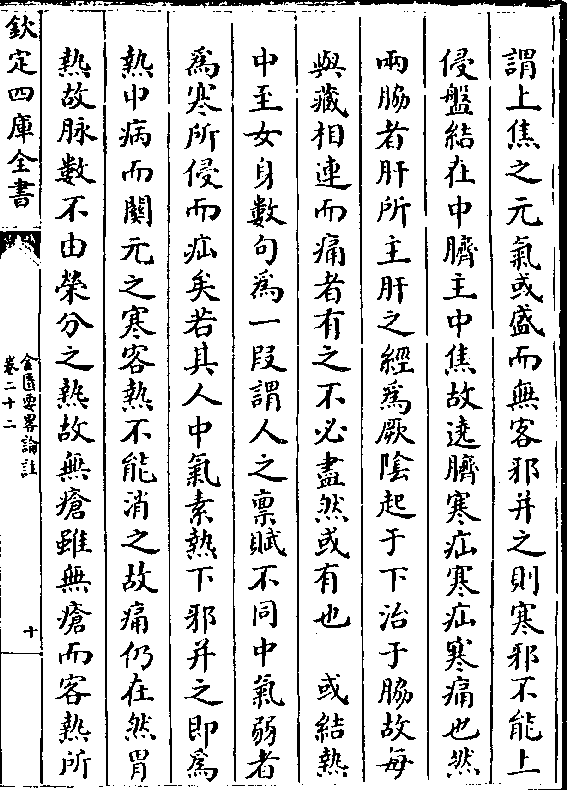 謂上焦之元氣或盛而無客邪并之則寒邪不能上
侵盤結在中臍主中焦故遶臍寒疝寒疝寒痛也然
兩脇者肝所主肝之經為厥陰起于下治于脇故每
與藏相連而痛者有之不必盡然或有也　或結熱
中至女身數句為一段謂人之禀賦不同中氣弱者
為寒所侵而疝矣若其人中氣素熱下邪并之即為
熱中病而關元之寒客熱不能消之故痛仍在然胃
熱故脉數不由榮分之熱故無瘡雖無瘡而客熱所
欽定四庫全書
金匱要畧論註
卷二十二
十